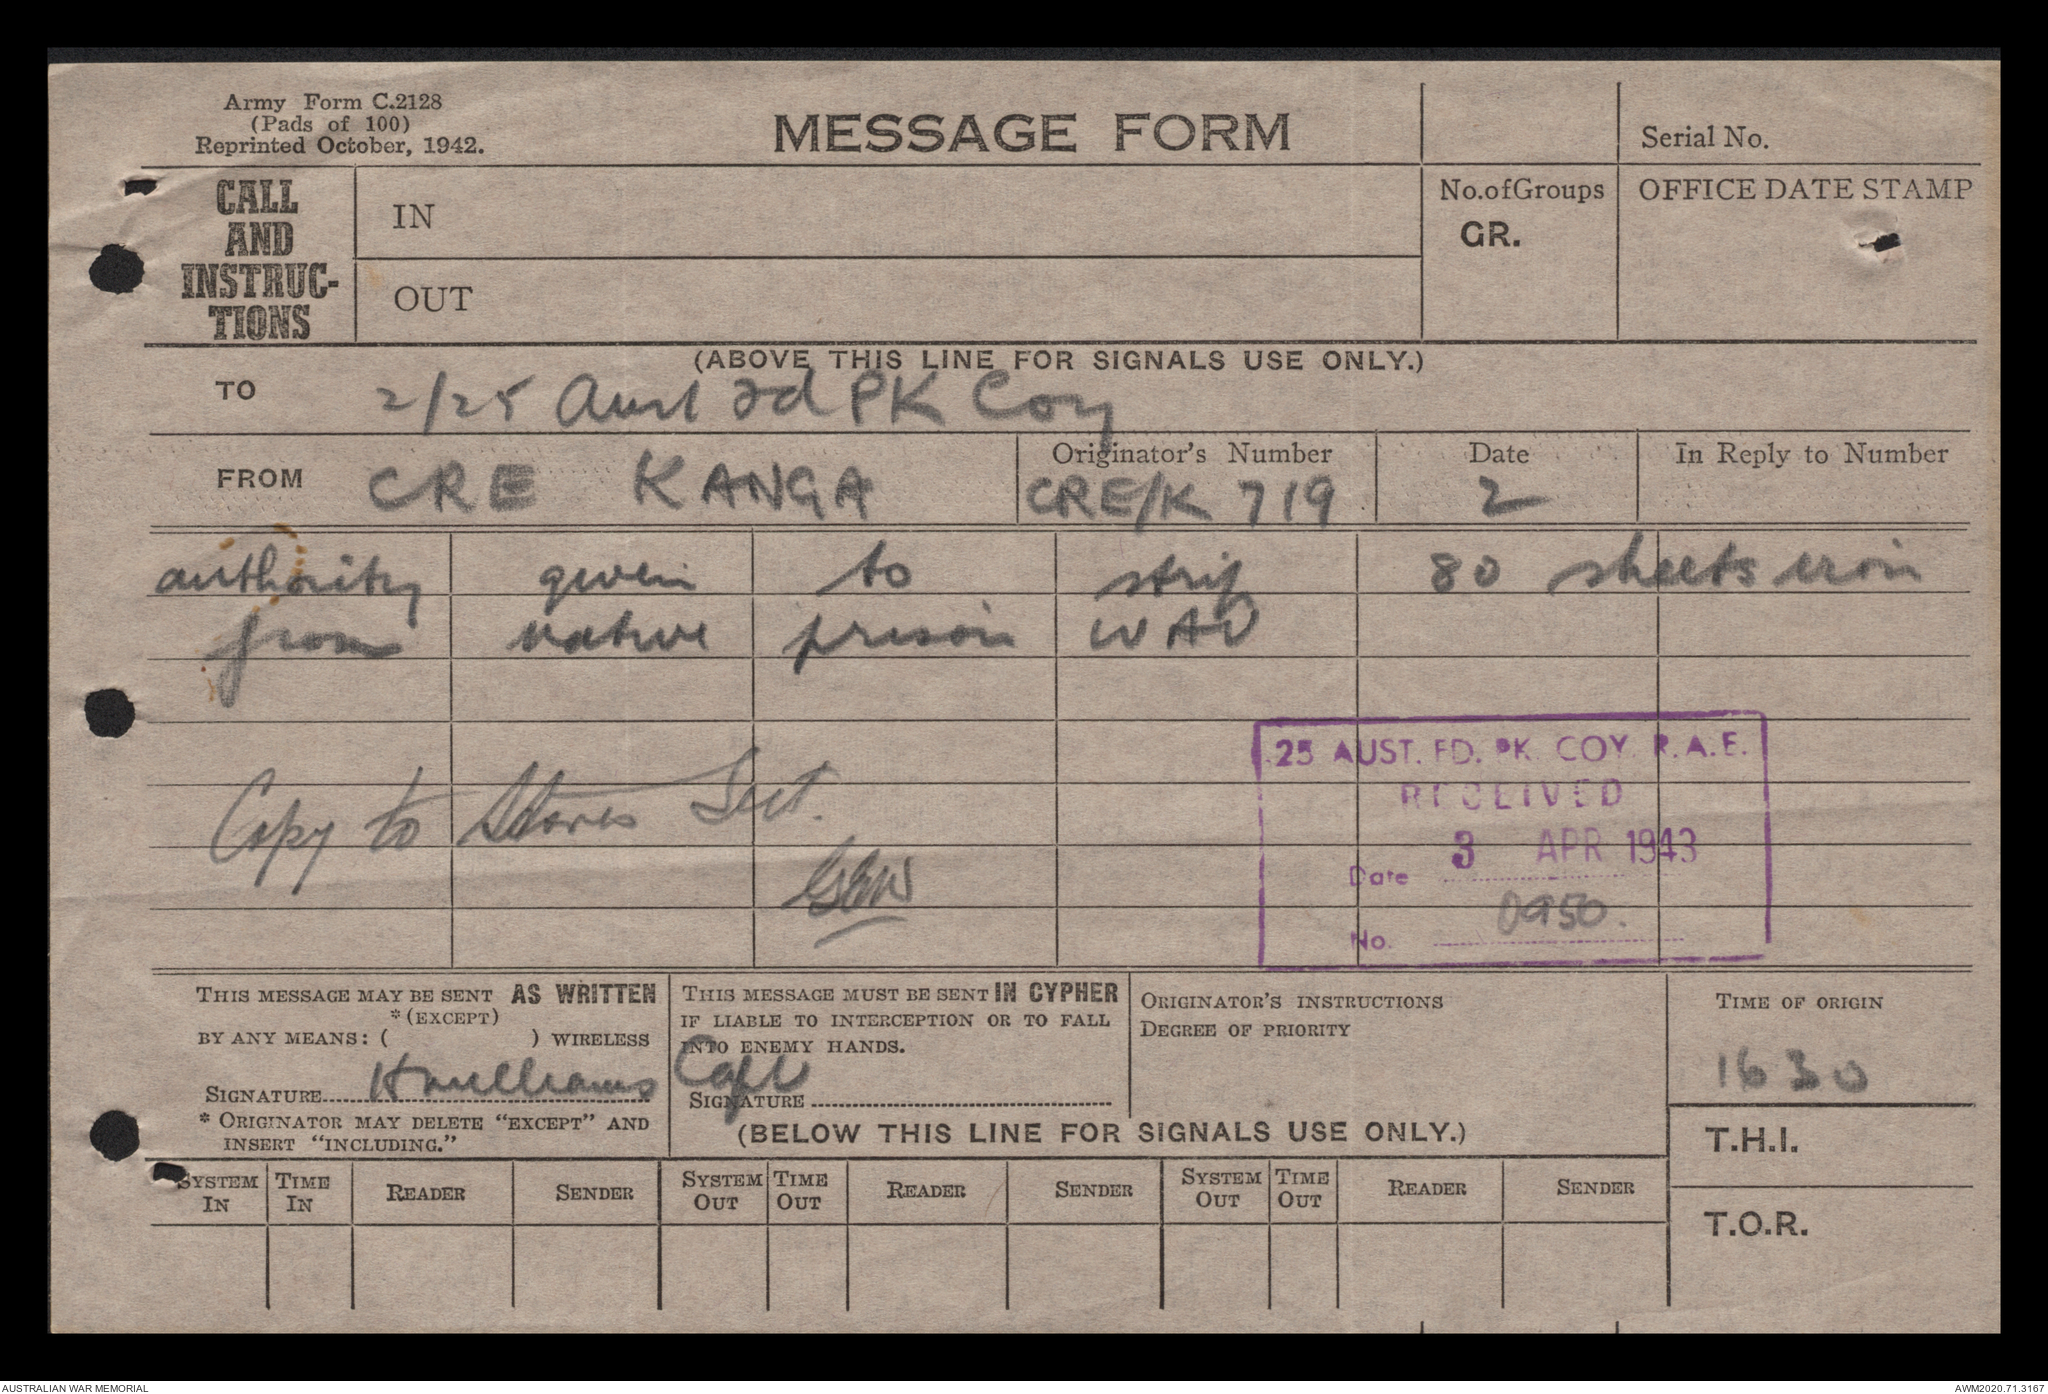 Army Form C.2128
(Pads of 100)
Reprinted October, 1942.
MESSAGE FORM
Serial No.
CALL
AND
INSTRUC-
TIONS
IN
OUT
No. of Groups
GR.
OFFICE DATE STAMP
(ABOVE THIS LINE FOR SIGNALS USE ONLY.)
TO 2/25 Aust Fd PK Coy
FROM CRE KANGA
Originator's Number
CRE/K 719
Date
2
In Reply to Number
authority given to strip 80 sheets iron
from native prison WAU
25 AUST. FD. PK. COY. R.A.E.
RECEIVED
Date 3 APR 1943
No. 0950.
Copy to Stores Sect.
GEW
THIS MESSAGE MAY BE SENT AS WRITTEN
*(EXCEPT)
BY ANY MEANS: ( ) WIRELESS
SIGNATURE HWilliams Capt
* ORIGINATOR MAY DELETE "EXCEPT" AND
INSERT "INCLUDING."
THIS MESSAGE MUST BE SENT IN CYPHER
IF LIABLE TO INTERCEPTION OR TO FALL
INTO ENEMY HANDS.
SIGNATURE
ORIGINATOR'S INSTRUCTIONS
DEGREE OF PRIORITY
TIME OF ORIGIN
1630
(BELOW THIS LINE FOR SIGNALS USE ONLY.)
T.H.I.
T.O.R.
SYSTEM IN TIME IN READER SENDER SYSTEM OUT TIME OUT READER SENDER SYSTEM OUT TIME OUT READER SENDER
AUSTRALIAN WAR MEMORIAL
AWM2020.71.3167